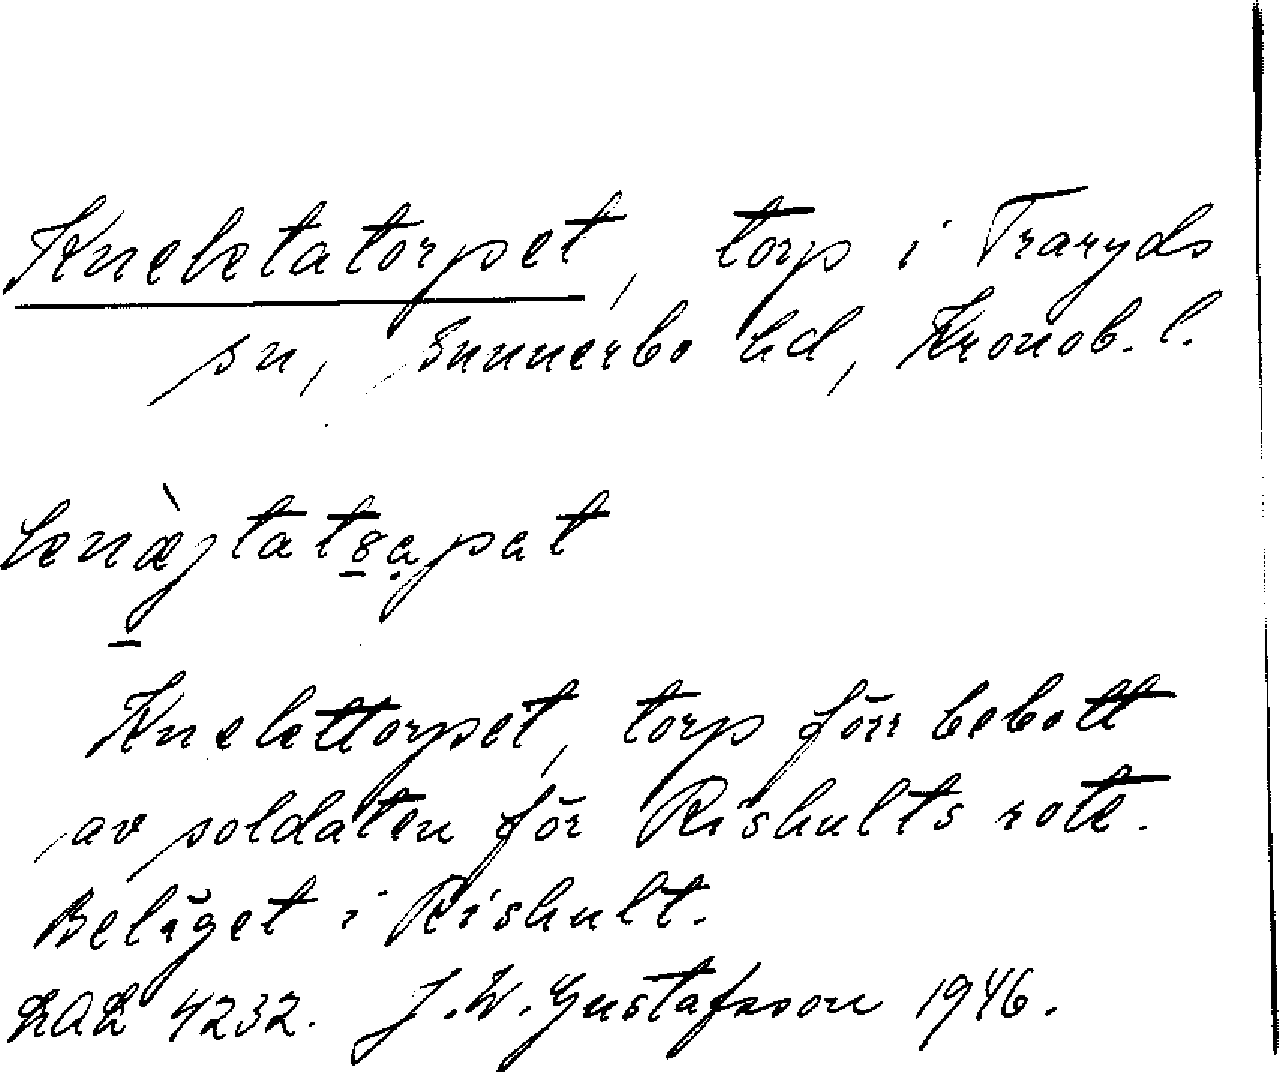 Knektatorpet, torp i Traryds
sn, Sunnerbo hd, Kronob. l.
Knekttorpet, torp förr bebott
av soldaten för Rishults rote.
Beläget i Rishult.
LAL 4232. J. W. Gustafsson 1946.